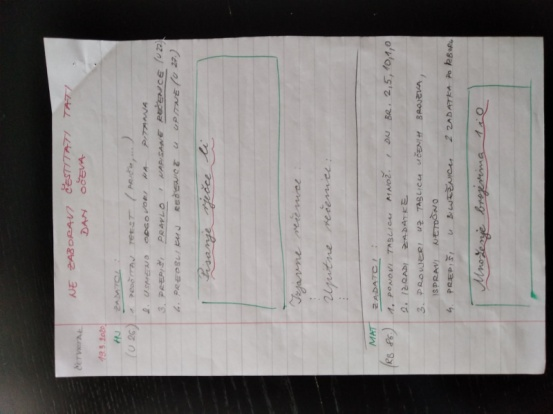 NE ZABORAVI ČESTITATI TATI
DAN OČEVA
HJ
ZADATCI:
1. POČITAJ TEKST
(U 26)
2. USMENO ODGOVORI NA PITANJA
3. PREPIŠI PRAVILO I NAPISANE REČENICE (U 27)
4. PREOBLIKUJ REČENICE U UPITNE (U 27)
Pisanje riječce li
Izjavne rečenice:
Upitne rečenice:
MAT
ZADATCI:
1. PONOVI TABLICU MNOŽ. I DIJ. BR. 2, 5, 10, 1, 0
2. IZRADI ZADATKE
3. PROVJERI UZ TABLICU UČENIH BROJEVA,
ISPRAVI NETOČNO
4. PREPIŠI U BILJEŽNICU 2 ZADATKA PO
Množenje brojevima 1 i 0